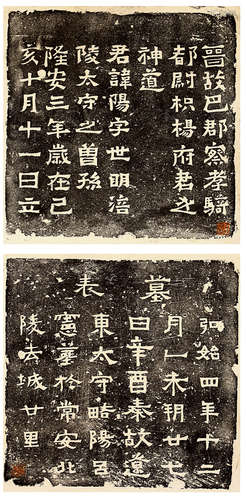 晉故巴郡察孝騎
都尉枳楊府君之
神道
君諱陽字世明涪
陵太守之曾孫
隆安三年歲在己
亥十月十一日立
墓表
弘始四年十二
月乙未朔廿七
日辛酉秦故遼
東太守略陽呂
憲葬於常安北
陵去城廿里